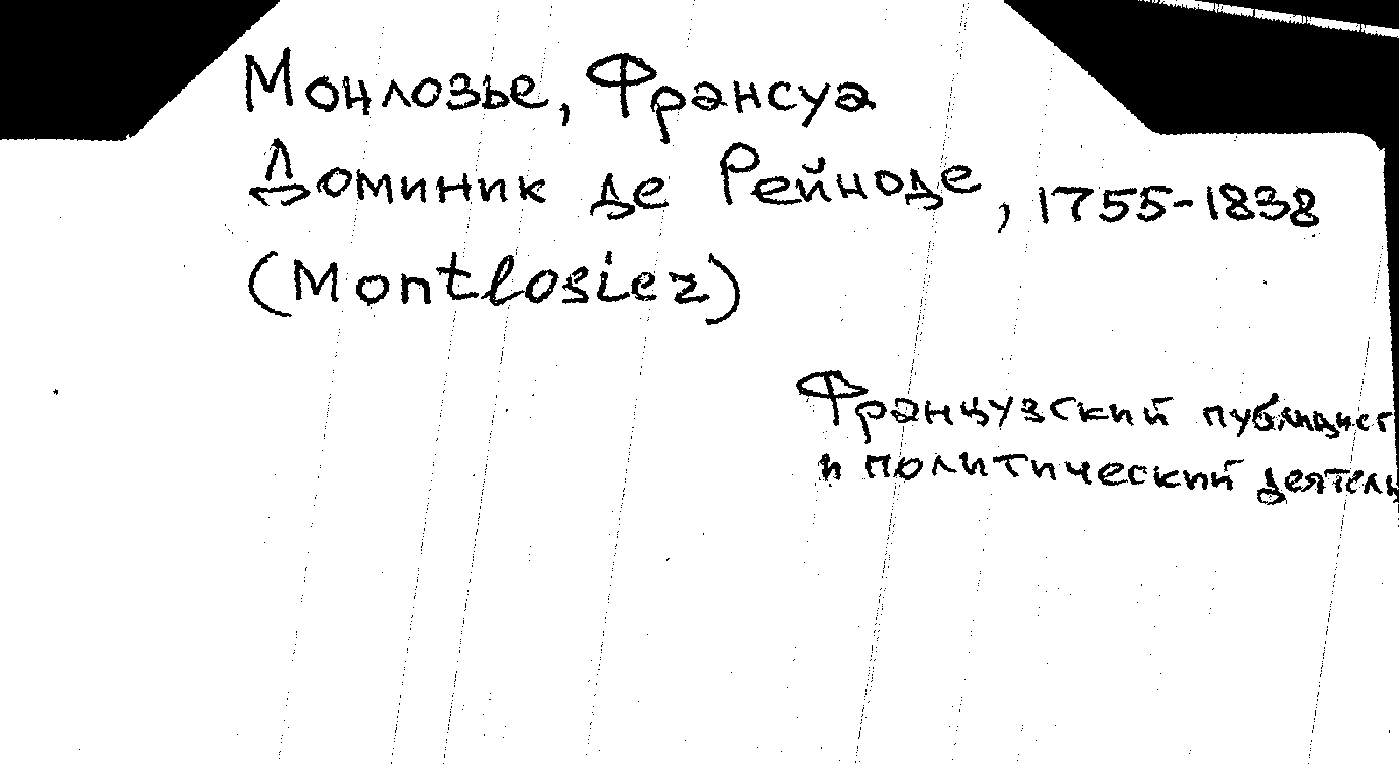 Монлозье, Франсуа
Доминик де Рейноде, 1755-1838
(Montlosier)
Французский публицист
и политический деятель